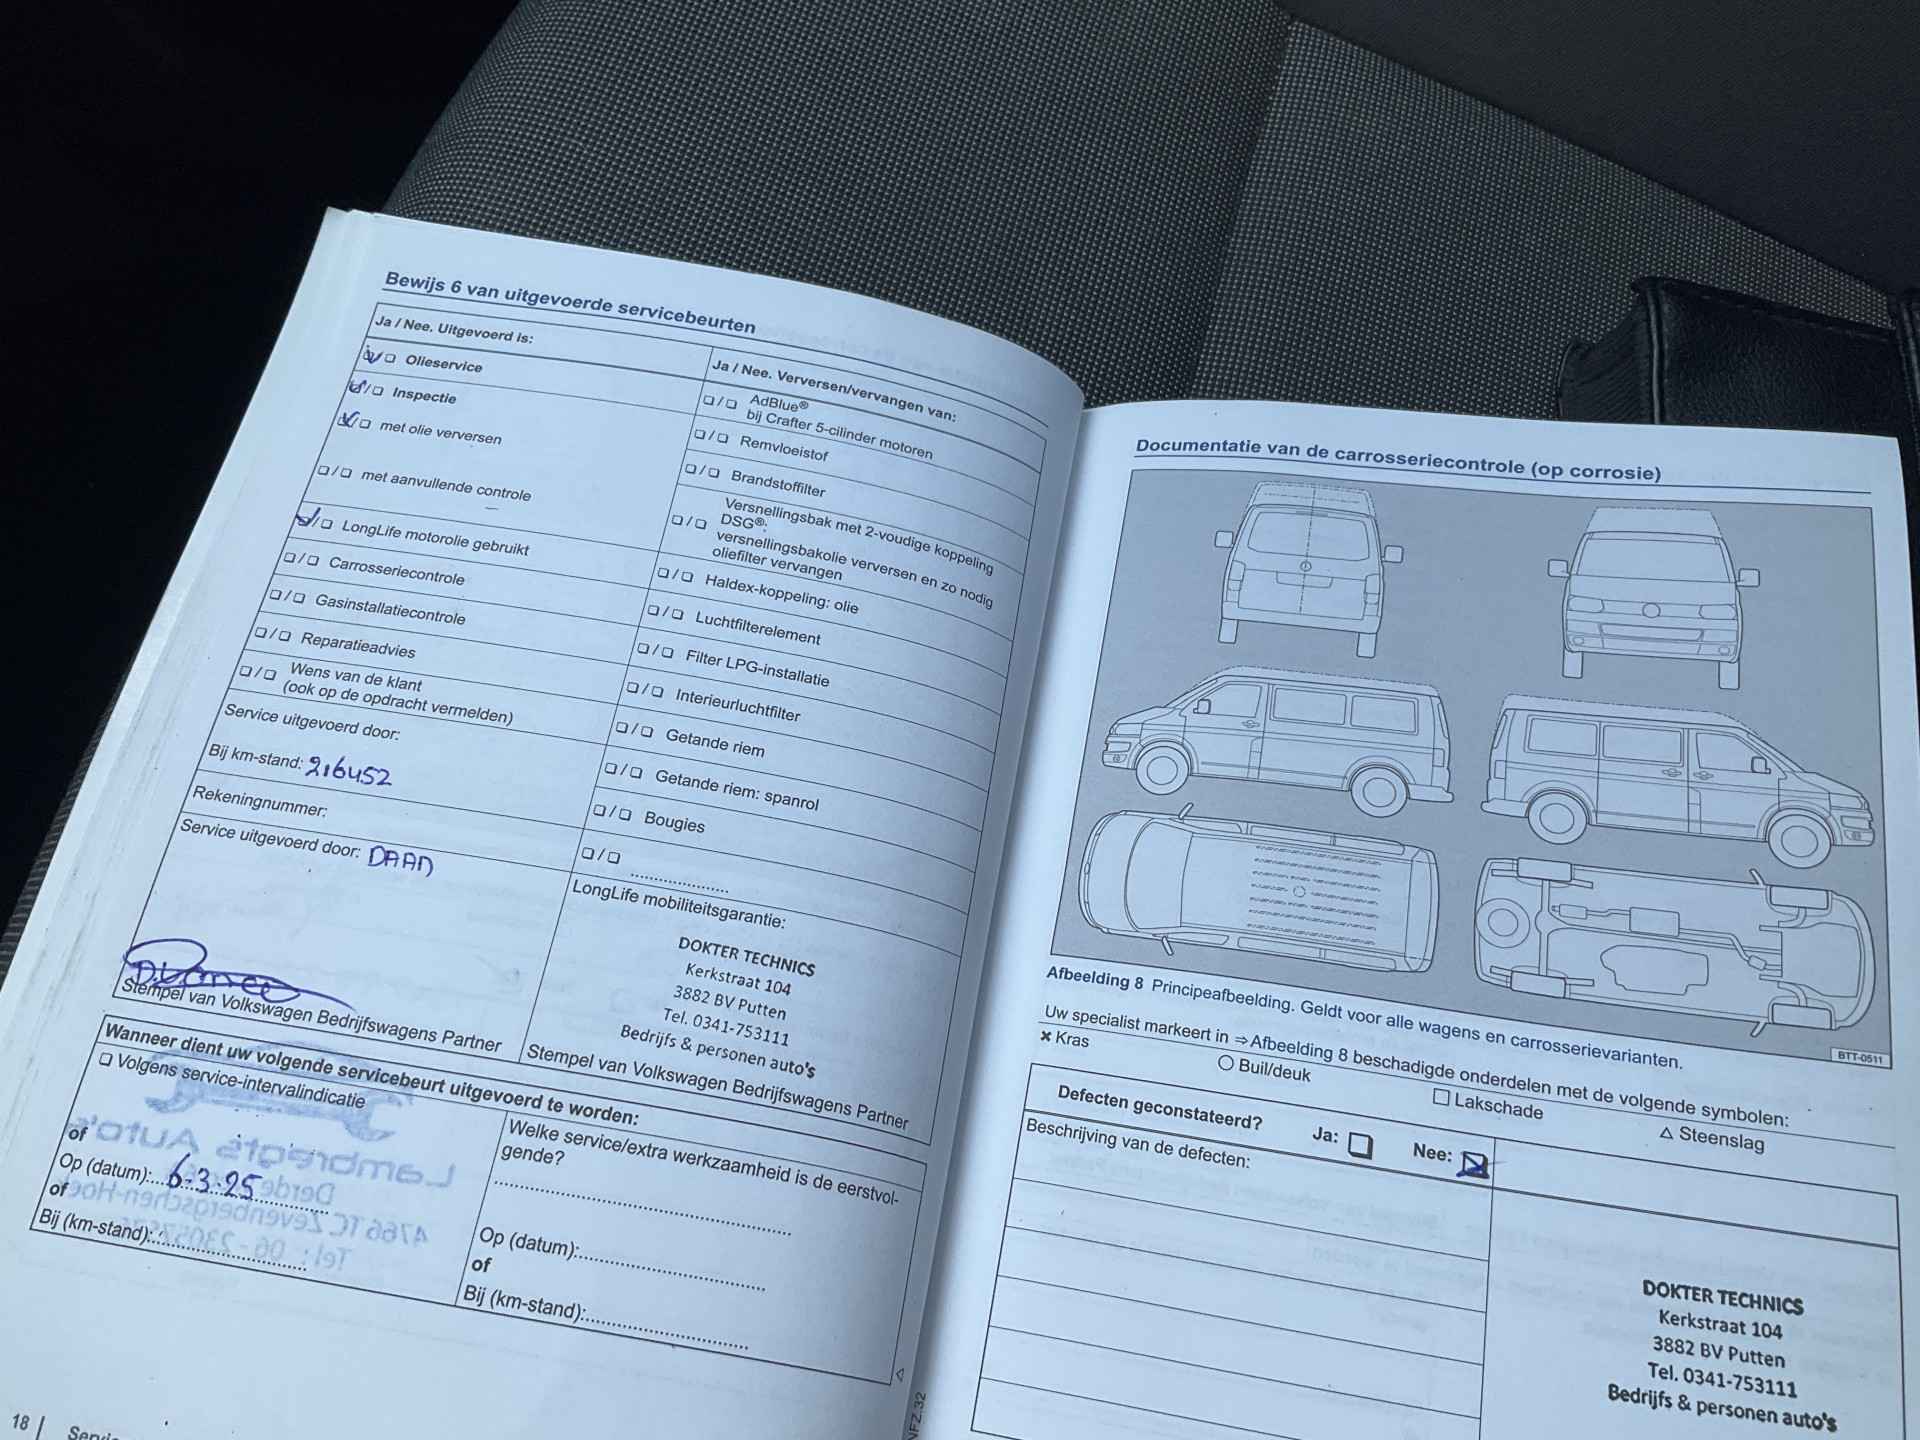 Bewijs 6 van uitgevoerde servicebeurten
Ja / Nee. Uitgevoerd is:
Olieservice
Inspectie
met olie verversen
met aanvullende controle
LongLife motorolie gebruikt
Carrosseriecontrole
Gasinstallatiecontrole
Reparatieadvies
Wens van de klant
(ook op de opdracht vermelden)
Service uitgevoerd door:
Bij km-stand: 216452
Rekeningnummer:
Service uitgevoerd door: DAAN
Stempel van Volkswagen Bedrijfswagens Partner
Ja / Nee. Verversen/vervangen van:
AdBlue®
bij Crafter 5-cilinder motoren
Remvloeistof
Brandstoffilter
Versnellingsbak met 2-voudige koppeling
DSG®:
versnellingsbakolie verversen en zo nodig
oliefilter vervangen
Haldex-koppeling: olie
Luchtfilterelement
Filter LPG-installatie
Interieurluchtfilter
Getande riem
Getande riem: spanrol
Bougies
LongLife mobiliteitsgarantie:
DOKTER TECHNICS
Kerkstraat 104
3882 BV Putten
Tel. 0341-753111
Bedrijfs & personen auto's
Stempel van Volkswagen Bedrijfswagens Partner
Wanneer dient uw volgende servicebeurt uitgevoerd te worden:
Volgens service-intervalindicatie
of
Op (datum): 6-3-25
of
Bij (km-stand):
Welke service/extra werkzaamheid is de eerstvol-
gende?
Op (datum):
of
Bij (km-stand):
18
Documentatie van de carrosseriecontrole (op corrosie)
BTT-0511
Afbeelding 8 Principeafbeelding. Geldt voor alle wagens en carrosserievarianten.
Uw specialist markeert in ⇒ Afbeelding 8 beschadigde onderdelen met de volgende symbolen:
× Kras
○ Buil/deuk
□ Lakschade
△ Steenslag
Defecten geconstateerd? Ja: Nee:
Beschrijving van de defecten:
DOKTER TECHNICS
Kerkstraat 104
3882 BV Putten
Tel. 0341-753111
Bedrijfs & personen auto's